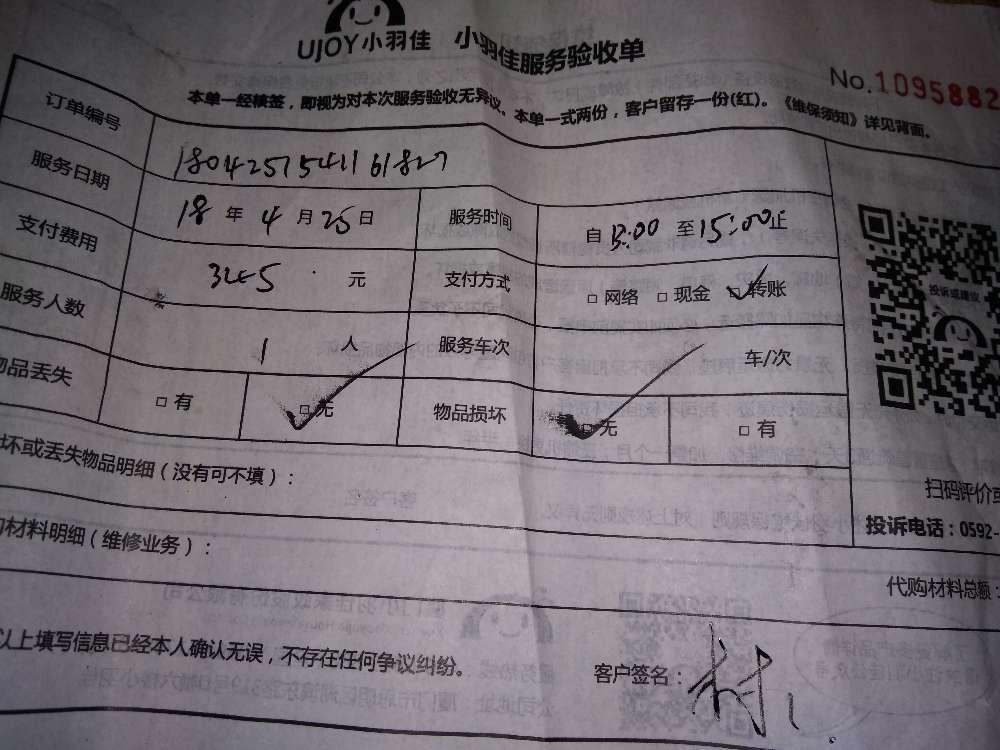 UJOY小羽佳 小羽佳服务验收单
No.1095882
本单一经核签，即视为对本次服务验收无异议。本单一式两份，客户留存一份(红)。《维保须知》详见背面。
订单编号 18042515411 61827
服务日期 18 年 4 月 25 日 服务时间 自 13:00 至 15:00 止
支付费用 元 支付方式 □ 网络 □ 现金 □ 转账
服务人数 1 人 服务车次 车/次
物品丢失 □ 有 □ 无 物品损坏 □ 无 □ 有
坏或丢失物品明细（没有可不填）：
购材料明细（维修业务）：
代购材料总额：
以上填写信息已经本人确认无误，不存在任何争议纠纷。
客户签名：
投诉或建议
扫码评价或
投诉电话：0592-